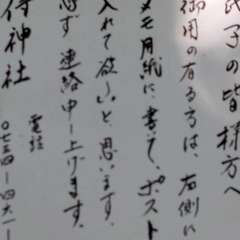 氏子の皆様方へ
御用の有る方は、右側に
メモ用紙に、書いて、ポスト
入れて欲しいと思います。
必ず連絡申し上げます。
侍神社
電話
〇七三四-四六一-